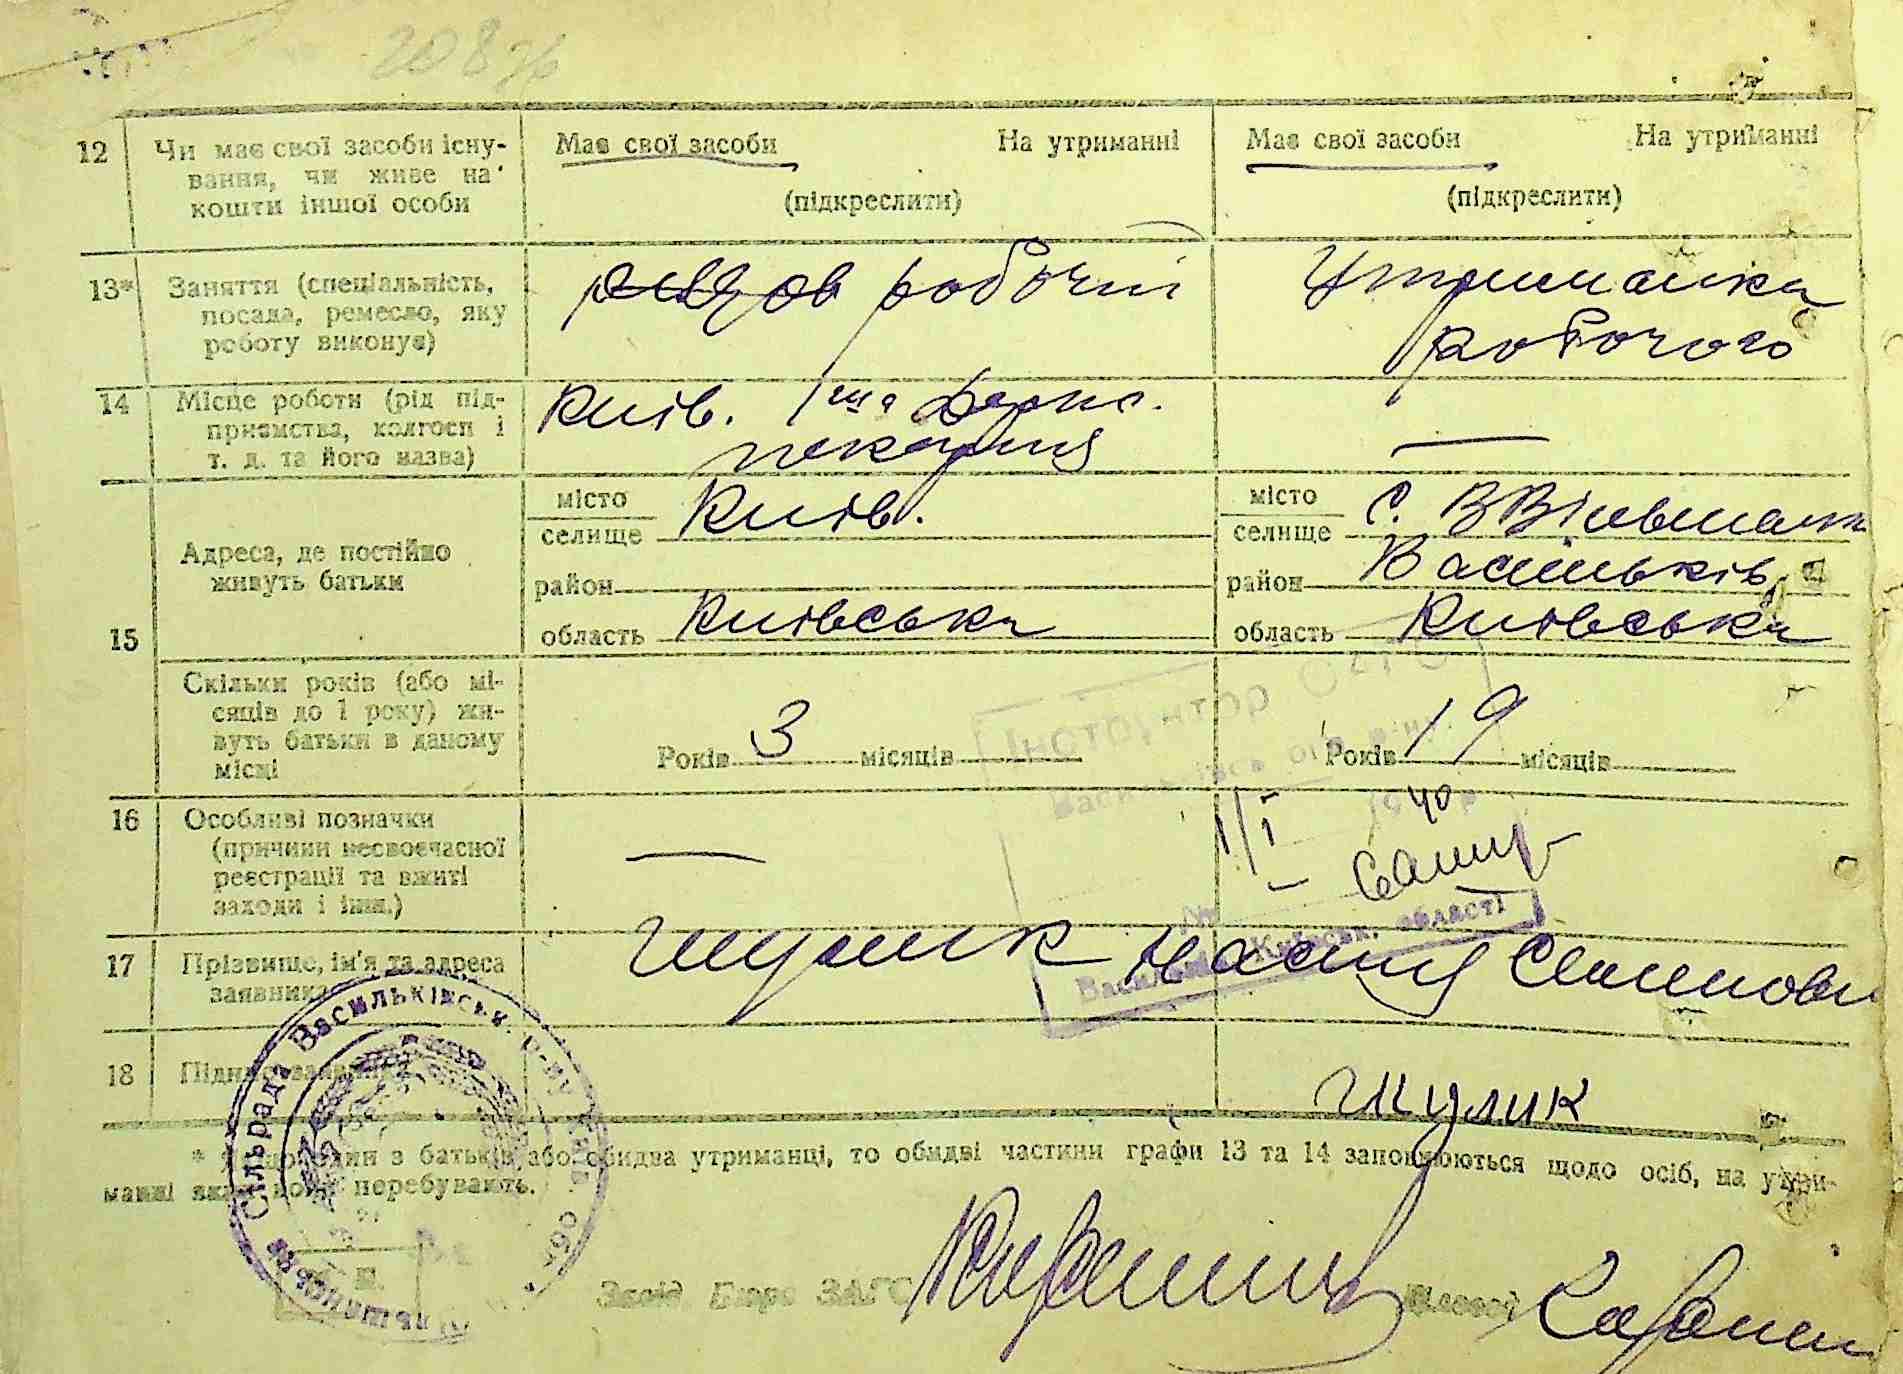 20876
12 Чи має свої засоби існу-
вання, чи живе на
кошти іншої особи
Має свої засоби На утриманні
(підкреслити)
Має свої засоби На утриманні
(підкреслити)
13* Заняття (спеціальність,
посада, ремесло, яку
роботу виконує)
робочий
Утриманка
робочого
14 Місце роботи (рід під-
приємства, колгосп і
т. д. та його назва)
Київ. 1ша Держ.
пекарня
—
15 Адреса, де постійно
живуть батьки
місто
селище Київ.
район
область Київська
місто
селище С. ВВільшанка
район Васильків
область Київська
Скільки років (або мі-
сяців до 1 року) жи-
вуть батьки в даному
місці
Років 3 місяців
Років 19 місяців
Інструктор
1/I 1940 р
№
Васильків, Київськ. області
16 Особливі позначки
(причини несвоєчасної
реєстрації та вжиті
заходи і інш.)
—
17 Прізвище, ім'я та адреса
заявника
Шулик Настя Семенов
18 Підпис заявника
Шулик
* Якщо один з батьків або обидва утриманці, то обидві частини графи 13 та 14 заповнюються щодо осіб, на утри-
манні яких вони перебувають.
Сільрада Васильківськ. р-ну Київ. обл.
Завід. Бюро ЗАГС